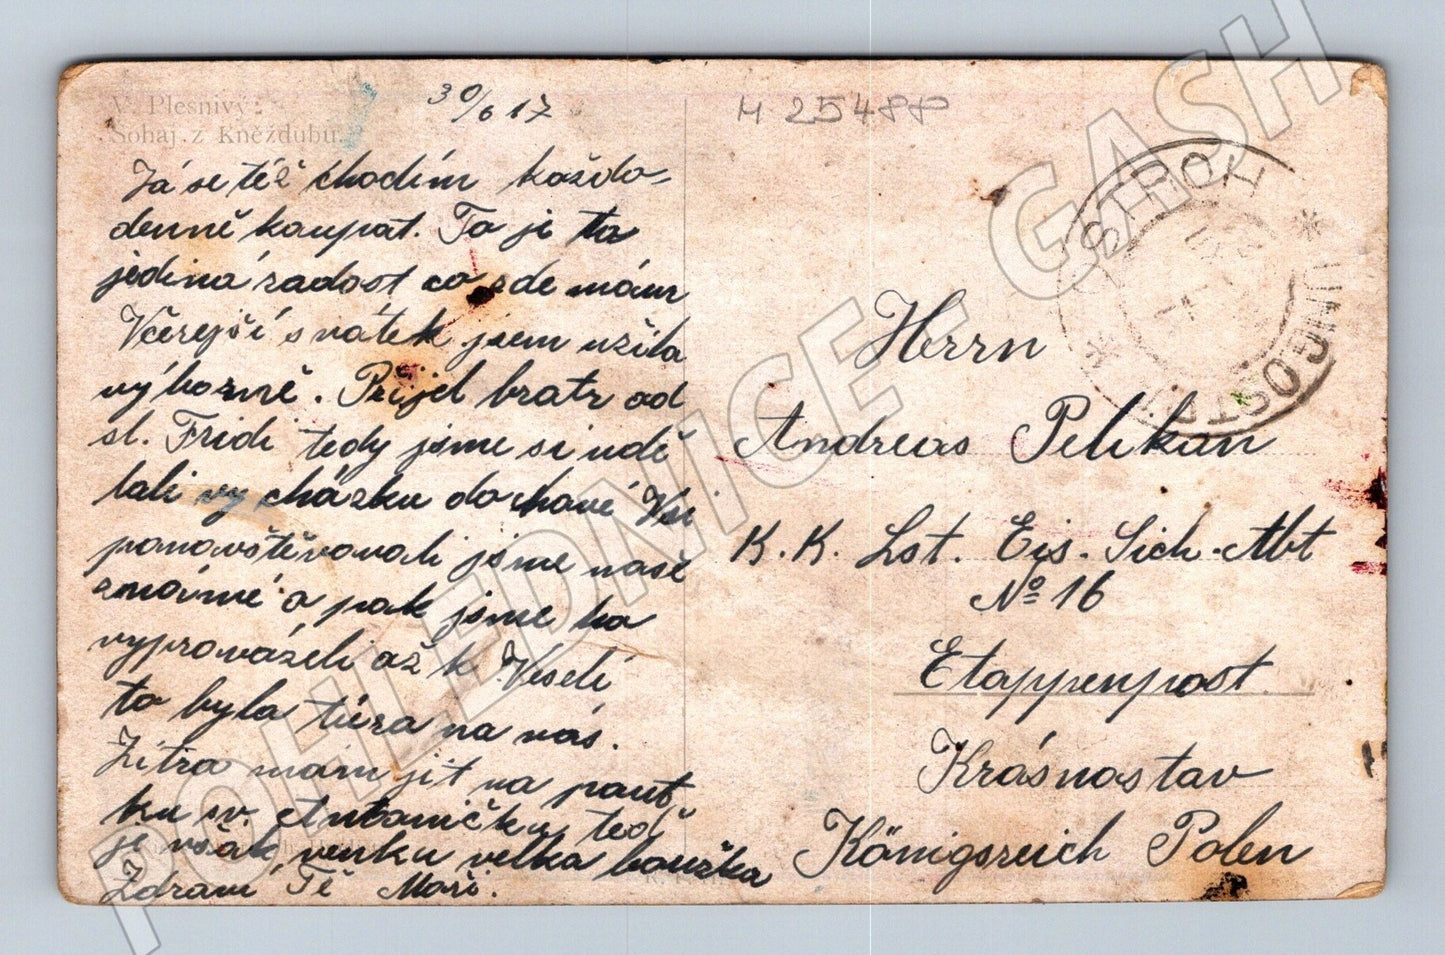 V. Plesnivý:
Šohaj z Kněždubu.
30/6 17
H 25488
Já se též chodím každo-
denně koupat. To je ta
jediná radost co zde mám
Včerejší svátek jsem užila
výborně. Přijel bratr od
sl. Fridi tedy jsme si udě
lali vycházku do
ponavštěvovali jsme naše
známé a pak jsme ho
vyprovázeli až k Veselí
to byla túra na nás.
Zítra mám jít na pouť
ku sv. Antoníčku, teď
je však venku velka bouřka
Zdraví Tě
Herrn
Andreas Pelikan
K. K. Lst. Eis. Sich. Abt
№ 16
Etappenpost
Krásnostav
Königsreich Polen
STROŽ
UNGOSTRA
POHLEDNICE - GASH